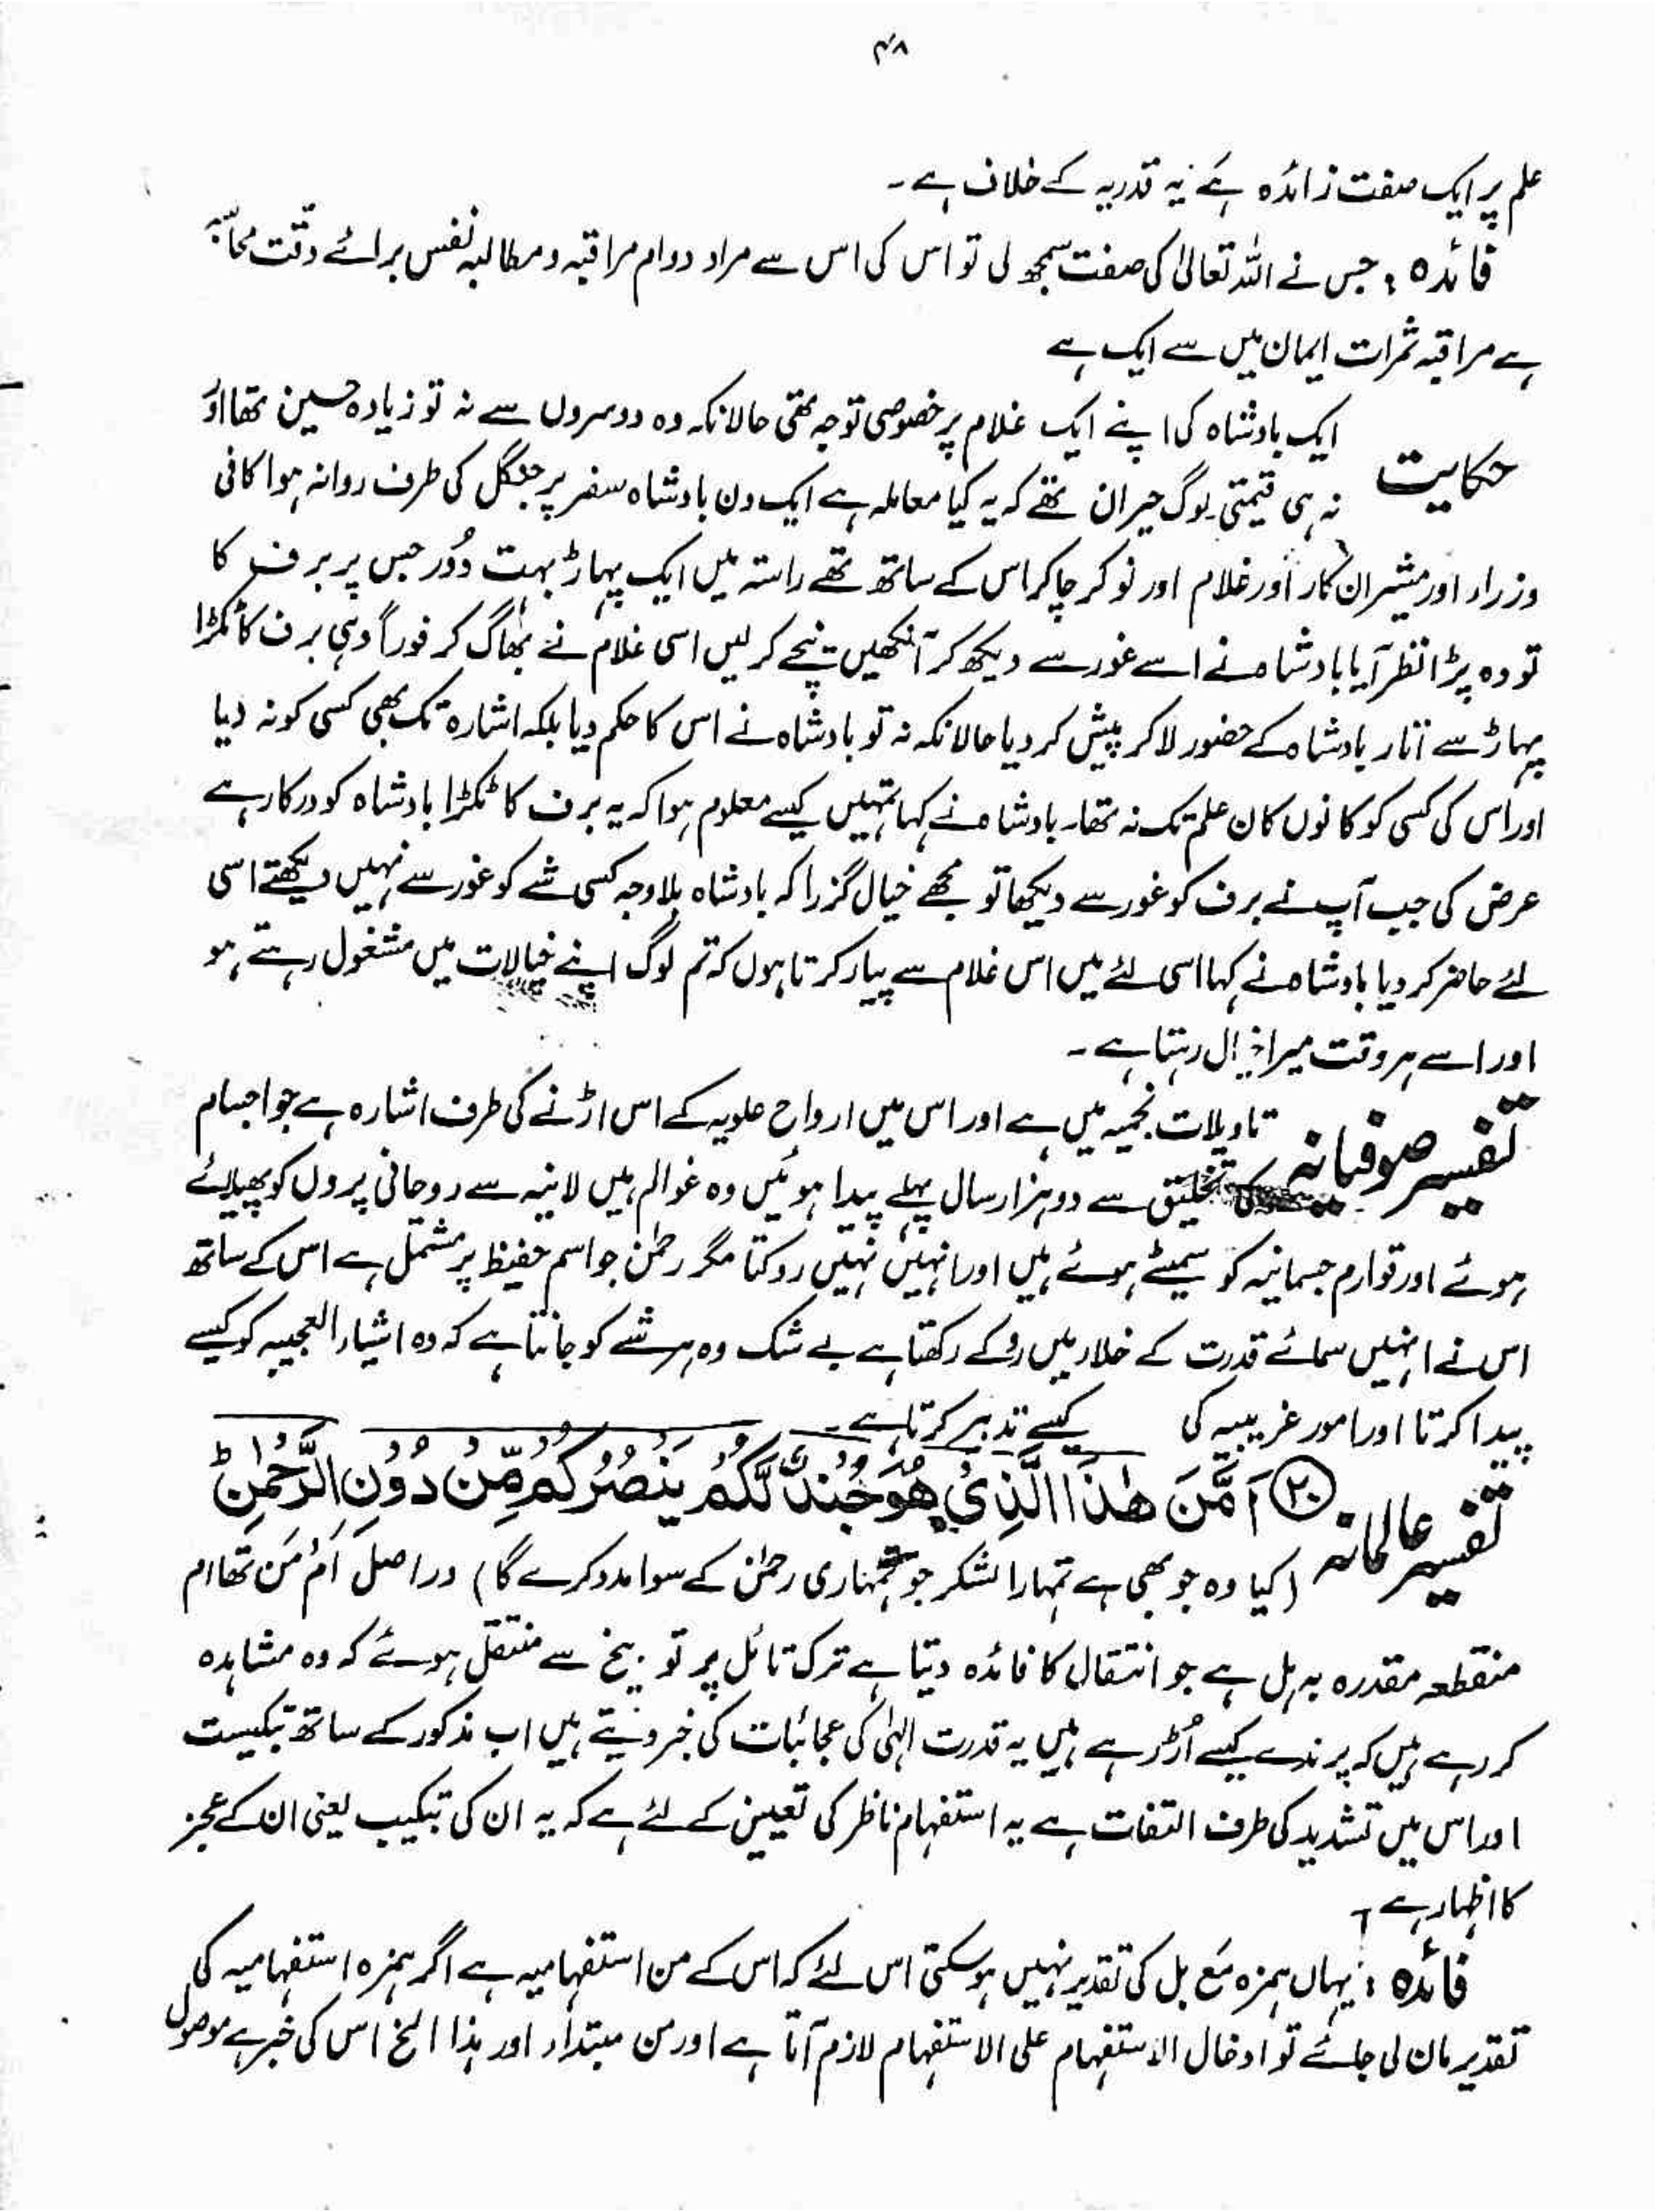 ۴۸
علم پر ایک صفت زائدہ ہے یہ قدریہ کے خلاف ہے۔
فائدہ : جس نے اللہ تعالیٰ کی صفت سمجھ لی تو اس کی اس سے مراد دوام مراقبہ و مطالبہ نفس برائے دقت محاسبہ
ہے مراقبہ ثمرات ایمان میں سے ایک ہے
حکایت ایک بادشاہ کی اپنے ایک غلام پر خصوصی توجہ تھی حالانکہ وہ دوسروں سے نہ تو زیادہ حسین تھا اور
نہ ہی قیمتی لوگ حیران تھے کہ یہ کیا معاملہ ہے ایک دن بادشاہ سفر پر جنگل کی طرف روانہ ہوا کافی
وزراء اور مشیران کار اور غلام اور نوکر چاکر اس کے ساتھ تھے راستہ میں ایک پہاڑ بہت دُور جس پر برف کا
تودہ پڑا نظر آیا بادشاہ نے اسے غور سے دیکھ کر آنکھیں نیچے کر لیں اسی غلام نے بھاگ کر فوراً وہی برف کا ٹکڑا
پہاڑ سے اتار بادشاہ کے حضور لا کر پیش کر دیا حالانکہ نہ تو بادشاہ نے اس کا حکم دیا بلکہ اشارہ تک بھی کسی کو نہ دیا
اور اس کی کسی کو کانوں کان علم تک نہ تھا۔ بادشاہ نے کہا تمہیں کیسے معلوم ہوا کہ یہ برف کا ٹکڑا بادشاہ کو درکار ہے
عرض کی جب آپ نے برف کو غور سے دیکھا تو مجھے خیال گزرا کہ بادشاہ بلاوجہ کسی شے کو غور سے نہیں دیکھتے اسی
لئے حاضر کر دیا بادشاہ نے کہا اسی لئے میں اس غلام سے پیار کرتا ہوں کہ تم لوگ اپنے خیالات میں مشغول رہتے ہو
اور اسے ہر وقت میرا خیال رہتا ہے۔
تفسیر صوفیانہ تاویلات نجمیہ میں ہے اور اس میں ارواح علویہ کے اس اڑنے کی طرف اشارہ ہے جو اجسام
کی تخلیق سے دو ہزار سال پہلے پیدا ہوئیں وہ عوالم میں سے روحانی پروں کو پھیلائے
ہوئے اور قوارم جسمانیہ کو سمیٹے ہوئے ہیں اور انہیں نہیں روکتا مگر رحمٰن جو اسم حفیظ پر مشتمل ہے اس کے ساتھ
اس نے انہیں سمائے قدرت کے خلاء میں روکے رکھتا ہے بے شک وہ ہر شے کو جانتا ہے کہ وہ اشیاء العجیبہ کو کیسے
پیدا کرتا اور امور غریبیہ کی کیسے تدبیر کرتا ہے۔
تفسیر عالمانہ ۲۰ اَمَّنَ ھٰذَا الَّذِیۡ ھُوَ جُنۡدٌ لَّکُمۡ یَنۡصُرُکُمۡ مِّنۡ دُوۡنِ الرَّحۡمٰنِ ؕ
(کیا وہ جو بھی ہے تمہارا لشکر جو تمہاری رحمٰن کے سوا مدد کرے گا) دراصل اَمْ مَنْ تھا ام
منقطعہ مقدرہ بہ بل ہے جو انتقال کا فائدہ دیتا ہے ترک تائل پر توبیخ سے منتقل ہوئے کہ وہ مشاہدہ
کر رہے ہیں کہ پرندے کیسے اُڑ رہے ہیں یہ قدرت الٰہی کی عجائبات کی خبر دیتے ہیں اب مذکور کے ساتھ تبکیت
اور اس میں تشدید کی طرف التفات ہے یہ استفہام ناظر کی تعیین کے لئے ہے کہ یہ ان کی تبکیب یعنی ان کے عجز
کا اظہار ہے
فائدہ : یہاں ہمزہ مَع بل کی تقدیر نہیں ہو سکتی اس لئے کہ اس کے من استفہامیہ ہے اگر ہمزہ استفہامیہ کی
تقدیر مان لی جائے تو ادخال الاستفہام علی الاستفہام لازم آتا ہے اور من مبتداء اور ہذا الخ اس کی خبر ہے موصول